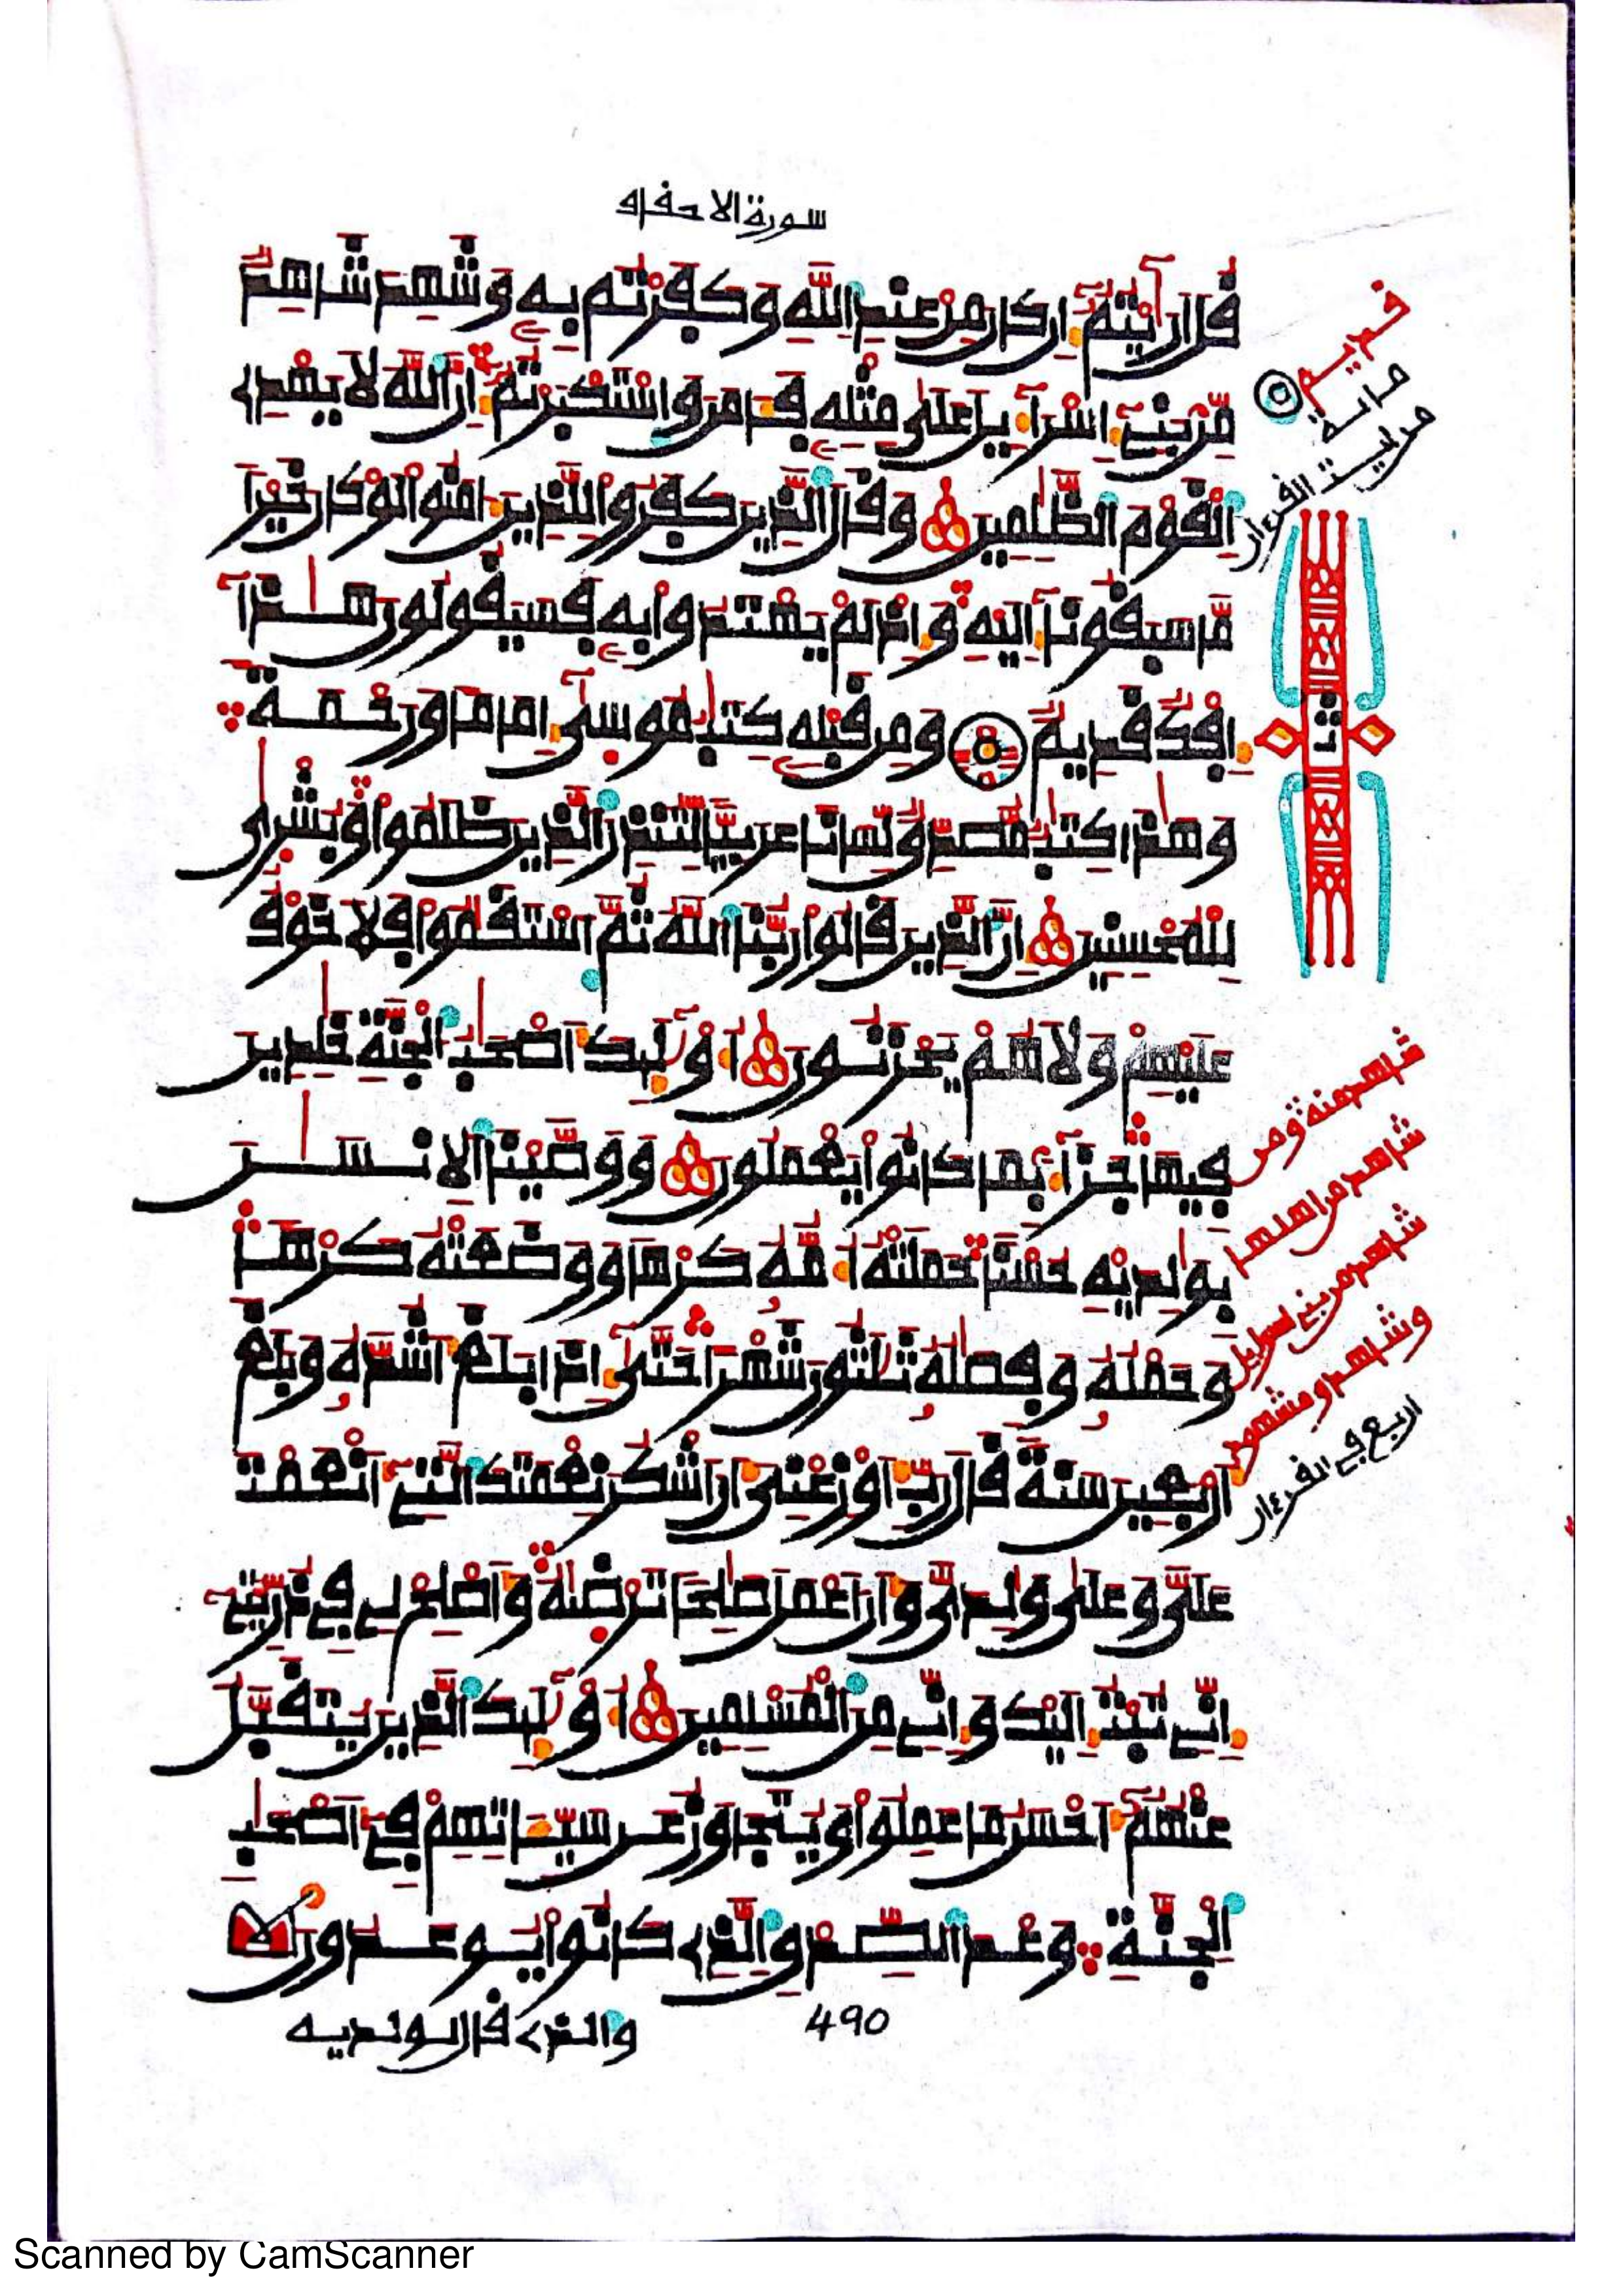 سورة الاحقاف
قُلَ ارَٰيْتُمُ إِن كَانَ مِنْ عِندِ اللَّهِ وَكَفَرْتُم بِهِ وَشَهِدَ شَاهِدٌ
مِّنۢ بَنِي إِسْرَآءِيلَ عَلَىٰ مِثْلِهِ فَـَٔامَنَ وَاسْتَكْبَرْتُمُ إِنَّ اللَّهَ لَا يَهْدِي
الْقَوْمَ الظَّٰلِمِينَ وَقَالَ الَّذِينَ كَفَرُوا لِلَّذِينَ ءَامَنُوا لَوْ كَانَ خَيْرًا
مَّا سَبَقُونَا إِلَيْهِ وَإِذْ لَمْ يَهْتَدُوا بِهِ فَسَيَقُولُونَ هَٰذَا
إِفْكٌ قَدِيمٌ وَمِن قَبْلِهِ كِتَٰبُ مُوسَىٰ إِمَامًا وَرَحْمَةً
وَهَٰذَا كِتَٰبٌ مُّصَدِّقٌ لِّسَانًا عَرَبِيًّا لِّتُنذِرَ الَّذِينَ ظَلَمُوا وَبُشْرَىٰ
لِلْمُحْسِنِينَ إِنَّ الَّذِينَ قَالُوا رَبُّنَا اللَّهُ ثُمَّ اسْتَقَٰمُوا فَلَا خَوْفٌ
عَلَيْهِمْ وَلَا هُمْ يَحْزَنُونَ أُولَٰئِكَ أَصْحَٰبُ الْجَنَّةِ خَٰلِدِينَ
فِيهَا جَزَآءًۢ بِمَا كَانُوا يَعْمَلُونَ وَوَصَّيْنَا الْإِنسَٰنَ
بِوَٰلِدَيْهِ حُسْنًا حَمَلَتْهُ أُمُّهُ كَرْهًا وَوَضَعَتْهُ كَرْهًا
وَحَمْلُهُ وَفِصَٰلُهُ ثَلَٰثُونَ شَهْرًا حَتَّىٰ إِذَا بَلَغَ أَشُدَّهُ وَبَلَغَ
أَرْبَعِينَ سَنَةً قَالَ رَبِّ أَوْزِعْنِيَ أَنَ اشْكُرَ نِعْمَتَكَ الَّتِي أَنْعَمْتَ
عَلَيَّ وَعَلَىٰ وَٰلِدَيَّ وَأَنَ اعْمَلَ صَٰلِحًا تَرْضَىٰهُ وَأَصْلِحْ لِي فِي ذُرِّيَّتِي
إِنِّي تُبْتُ إِلَيْكَ وَإِنِّي مِنَ الْمُسْلِمِينَ أُولَٰئِكَ الَّذِينَ يُتَقَبَّلُ
عَنْهُمُ أَحْسَنُ مَا عَمِلُوا وَيُتَجَاوَزُ عَن سَيِّـَٔاتِهِمْ فِي أَصْحَٰبِ
الْجَنَّةِ وَعْدَ الصِّدْقِ الَّذِي كَانُوا يُوعَدُونَ
490
والذي قال لولديه
قديم
مائة
شاهد منه ومن
شاهد من اهلها
شاهد من بني اسرايل
وشاهد ومشهود
اربع في القرءان
Scanned by CamScanner